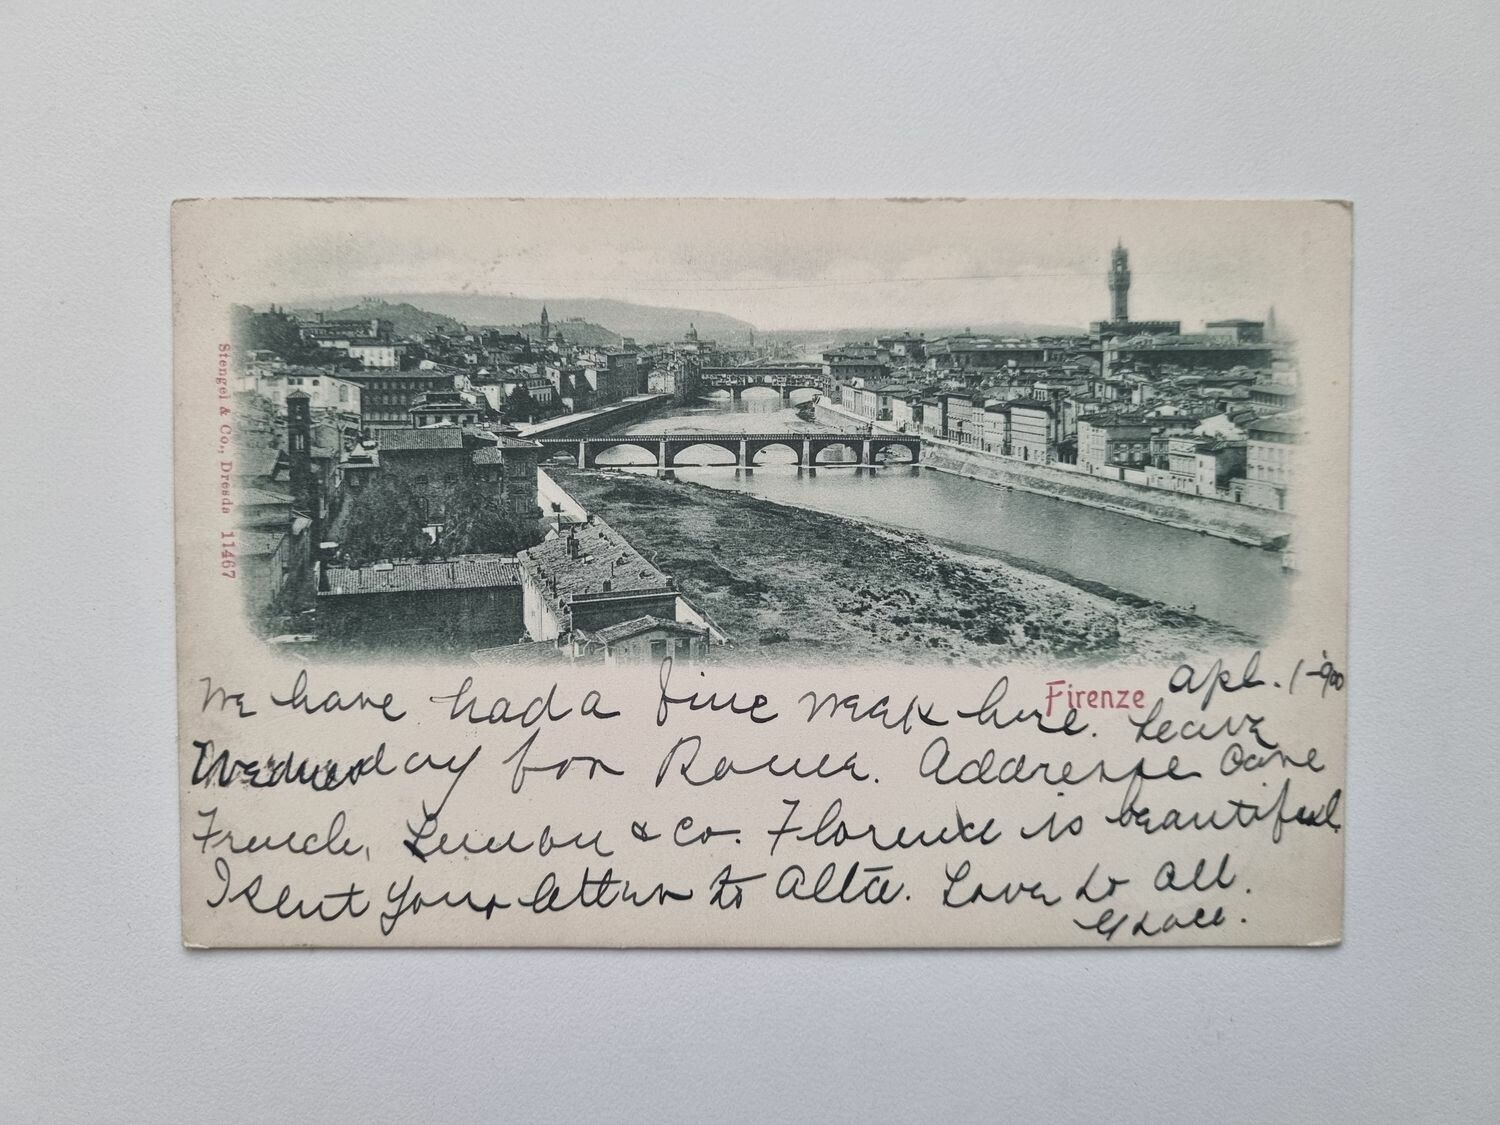 Stengel & Co., Dresda 11467
Firenze
Apl. 1-900
We have had a fine week here. Leave
Wednesday for Rome. Addresse Care
French, Lemon & Co. Florence is beautiful.
I sent your letter to Alta. Love to all.
Grace.